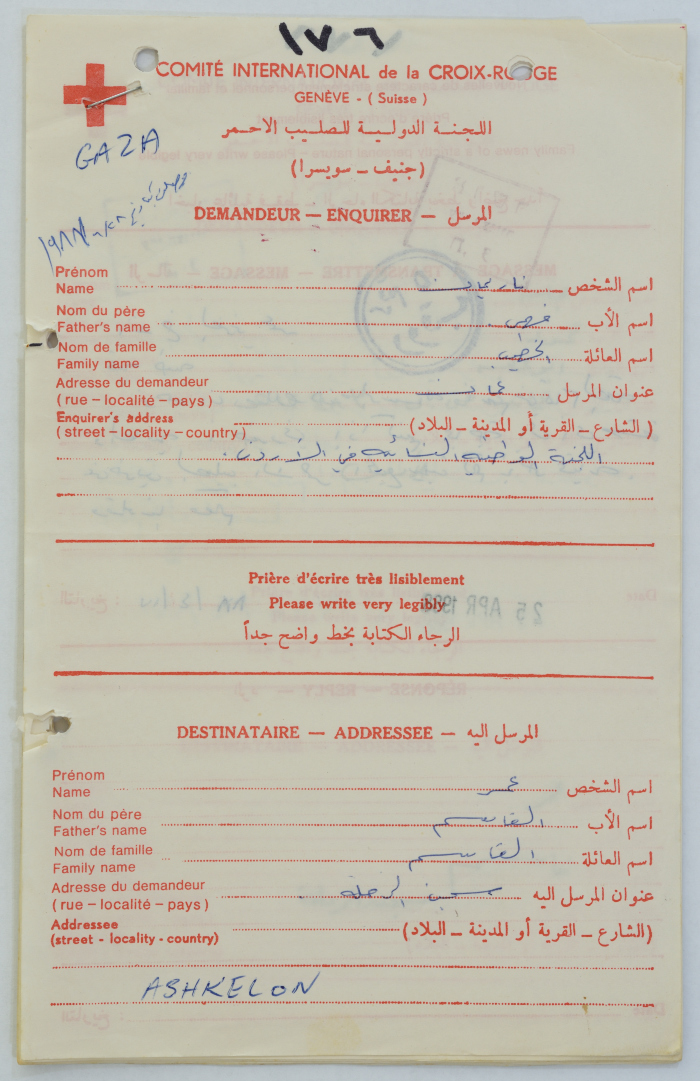 ١٧٦
COMITÉ INTERNATIONAL de la CROIX-ROUGE
GENÈVE - ( Suisse )
اللجنة الدولية للصليب الاحمر
(جنيف – سويسرا)
GAZA
DEMANDEUR — ENQUIRER — المرسل
Prénom
Name ناريمان اسم الشخص
Nom du père
Father's name اسم الأب
Nom de famille
Family name الخطيب اسم العائلة
Adresse du demandeur
( rue – localité – pays ) عمان عنوان المرسل
Enquirer's address
( street – locality – country ) ( الشارع – القرية أو المدينة – البلاد )
اللجنة الوطنية النسائية في الأردن .
Prière d'écrire très lisiblement
Please write very legibly
25 APR 1988
الرجاء الكتابة بخط واضح جداً
DESTINATAIRE — ADDRESSEE — المرسل اليه
Prénom
Name عمر اسم الشخص
Nom du père
Father's name القاسم اسم الأب
Nom de famille
Family name القاسم اسم العائلة
Adresse du demandeur
( rue – localité – pays ) سجن الرملة عنوان المرسل اليه
Addressee
(street - locality - country) (الشارع – القرية أو المدينة – البلاد)
ASHKELON